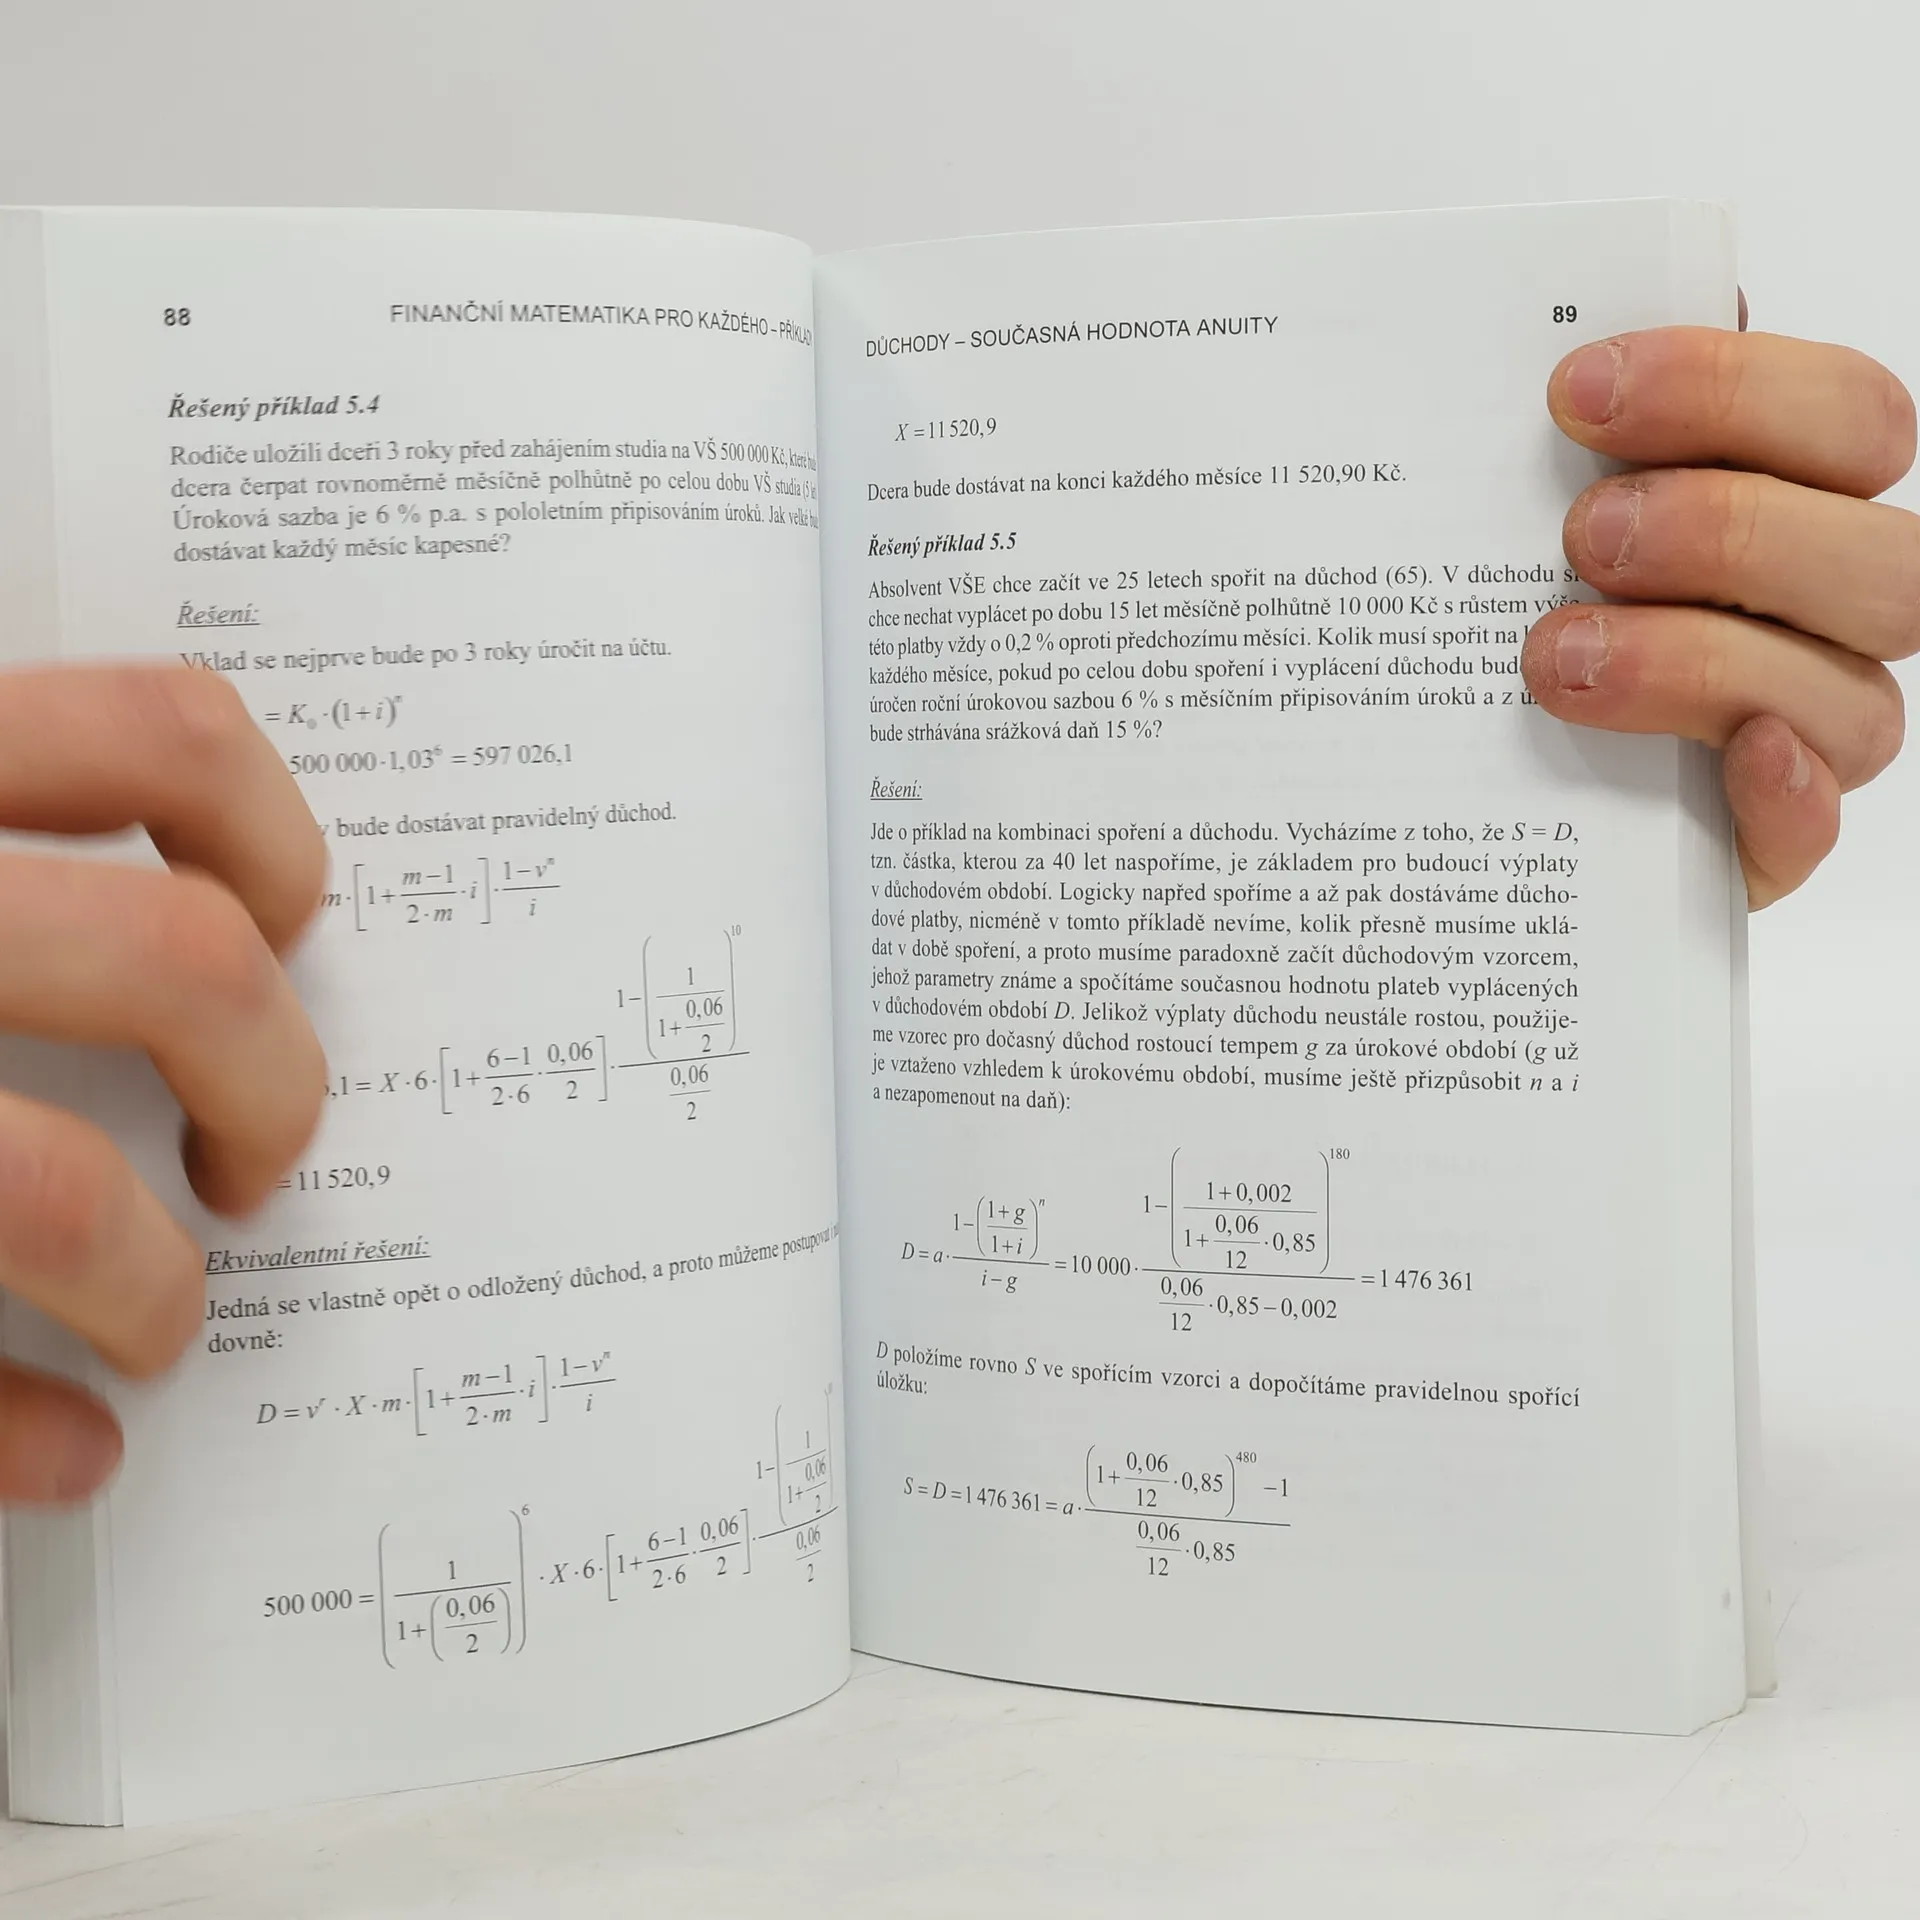 88 FINANČNÍ MATEMATIKA PRO KAŽDÉHO – PŘÍKLAD
Řešený příklad 5.4
Rodiče uložili dceři 3 roky před zahájením studia na VŠ 500 000 Kč, které
dcera čerpat rovnoměrně měsíčně polhůtně po celou dobu VŠ studia (5
Úroková sazba je 6 % p.a. s pololetním připisováním úroků. Jak velké
dostávat každý měsíc kapesné?
Řešení:
Vklad se nejprve bude po 3 roky úročit na účtu.
= K₀ · (1+i)ⁿ
500 000 · 1,03⁶ = 597 026,1
bude dostávat pravidelný důchod.
m · [1 + (m−1)/(2·m) · i] · (1−vⁿ)/i
,1 = X · 6 · [1 + (6−1)/(2·6) · 0,06/2] · (1−(1/(1+0,06/2))¹⁰)/(0,06/2)
= 11 520,9
Ekvivalentní řešení:
Jedná se vlastně opět o odložený důchod, a proto můžeme postupovat i
dovně:
D = vʳ · X · m · [1 + (m−1)/(2·m) · i] · (1−vⁿ)/i
500 000 = (1/(1+(0,06/2)))⁶ · X · 6 · [1 + (6−1)/(2·6) · 0,06/2] · (1−(1/(1+0,06/2)))/(0,06/2)
DŮCHODY – SOUČASNÁ HODNOTA ANUITY 89
X = 11 520,9
Dcera bude dostávat na konci každého měsíce 11 520,90 Kč.
Řešený příklad 5.5
Absolvent VŠE chce začít ve 25 letech spořit na důchod (65). V důchodu si
chce nechat vyplácet po dobu 15 let měsíčně polhůtně 10 000 Kč s růstem výše
této platby vždy o 0,2 % oproti předchozímu měsíci. Kolik musí spořit na
každého měsíce, pokud po celou dobu spoření i vyplácení důchodu bud
úročen roční úrokovou sazbou 6 % s měsíčním připisováním úroků a z
bude strhávána srážková daň 15 %?
Řešení:
Jde o příklad na kombinaci spoření a důchodu. Vycházíme z toho, že S = D,
tzn. částka, kterou za 40 let naspoříme, je základem pro budoucí výplaty
v důchodovém období. Logicky napřed spoříme a až pak dostáváme důcho-
dové platby, nicméně v tomto příkladě nevíme, kolik přesně musíme uklá-
dat v době spoření, a proto musíme paradoxně začít důchodovým vzorcem,
jehož parametry známe a spočítáme současnou hodnotu plateb vyplácených
v důchodovém období D. Jelikož výplaty důchodu neustále rostou, použije-
me vzorec pro dočasný důchod rostoucí tempem g za úrokové období (g už
je vztaženo vzhledem k úrokovému období, musíme ještě přizpůsobit n a i
a nezapomenout na daň):
D = a · (1−((1+g)/(1+i))ⁿ)/(i−g) = 10 000 · (1−((1+0,002)/(1+0,06/12 · 0,85))¹⁸⁰)/(0,06/12 · 0,85−0,002) = 1 476 361
D položíme rovno S ve spořícím vzorci a dopočítáme pravidelnou spořící
úložku:
S = D = 1 476 361 = a · ((1+0,06/12 · 0,85)⁴⁸⁰ −1)/(0,06/12 · 0,85)